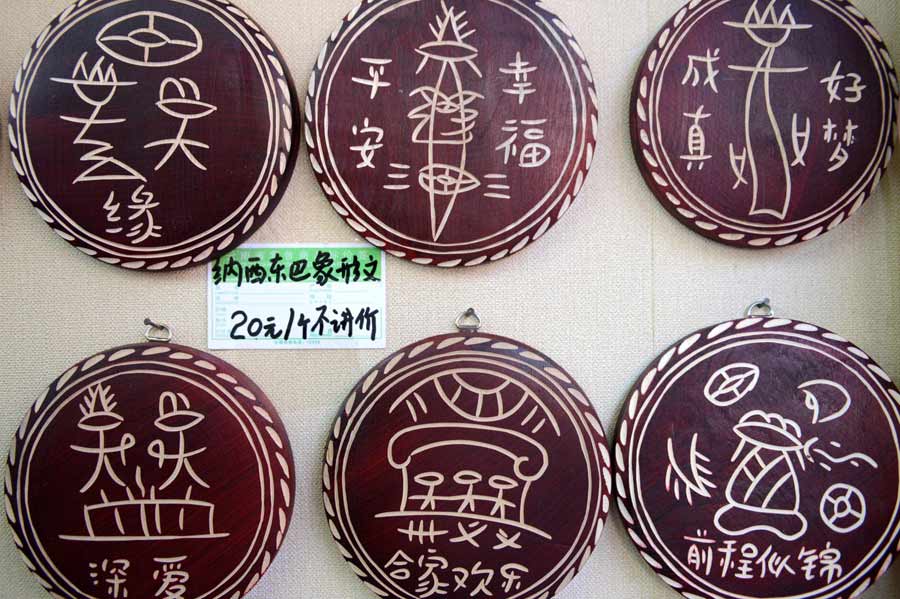 缘
平安
幸福
成真
好梦
纳西东巴象形文
20元1个不讲价
深爱
合家欢乐
前程似锦